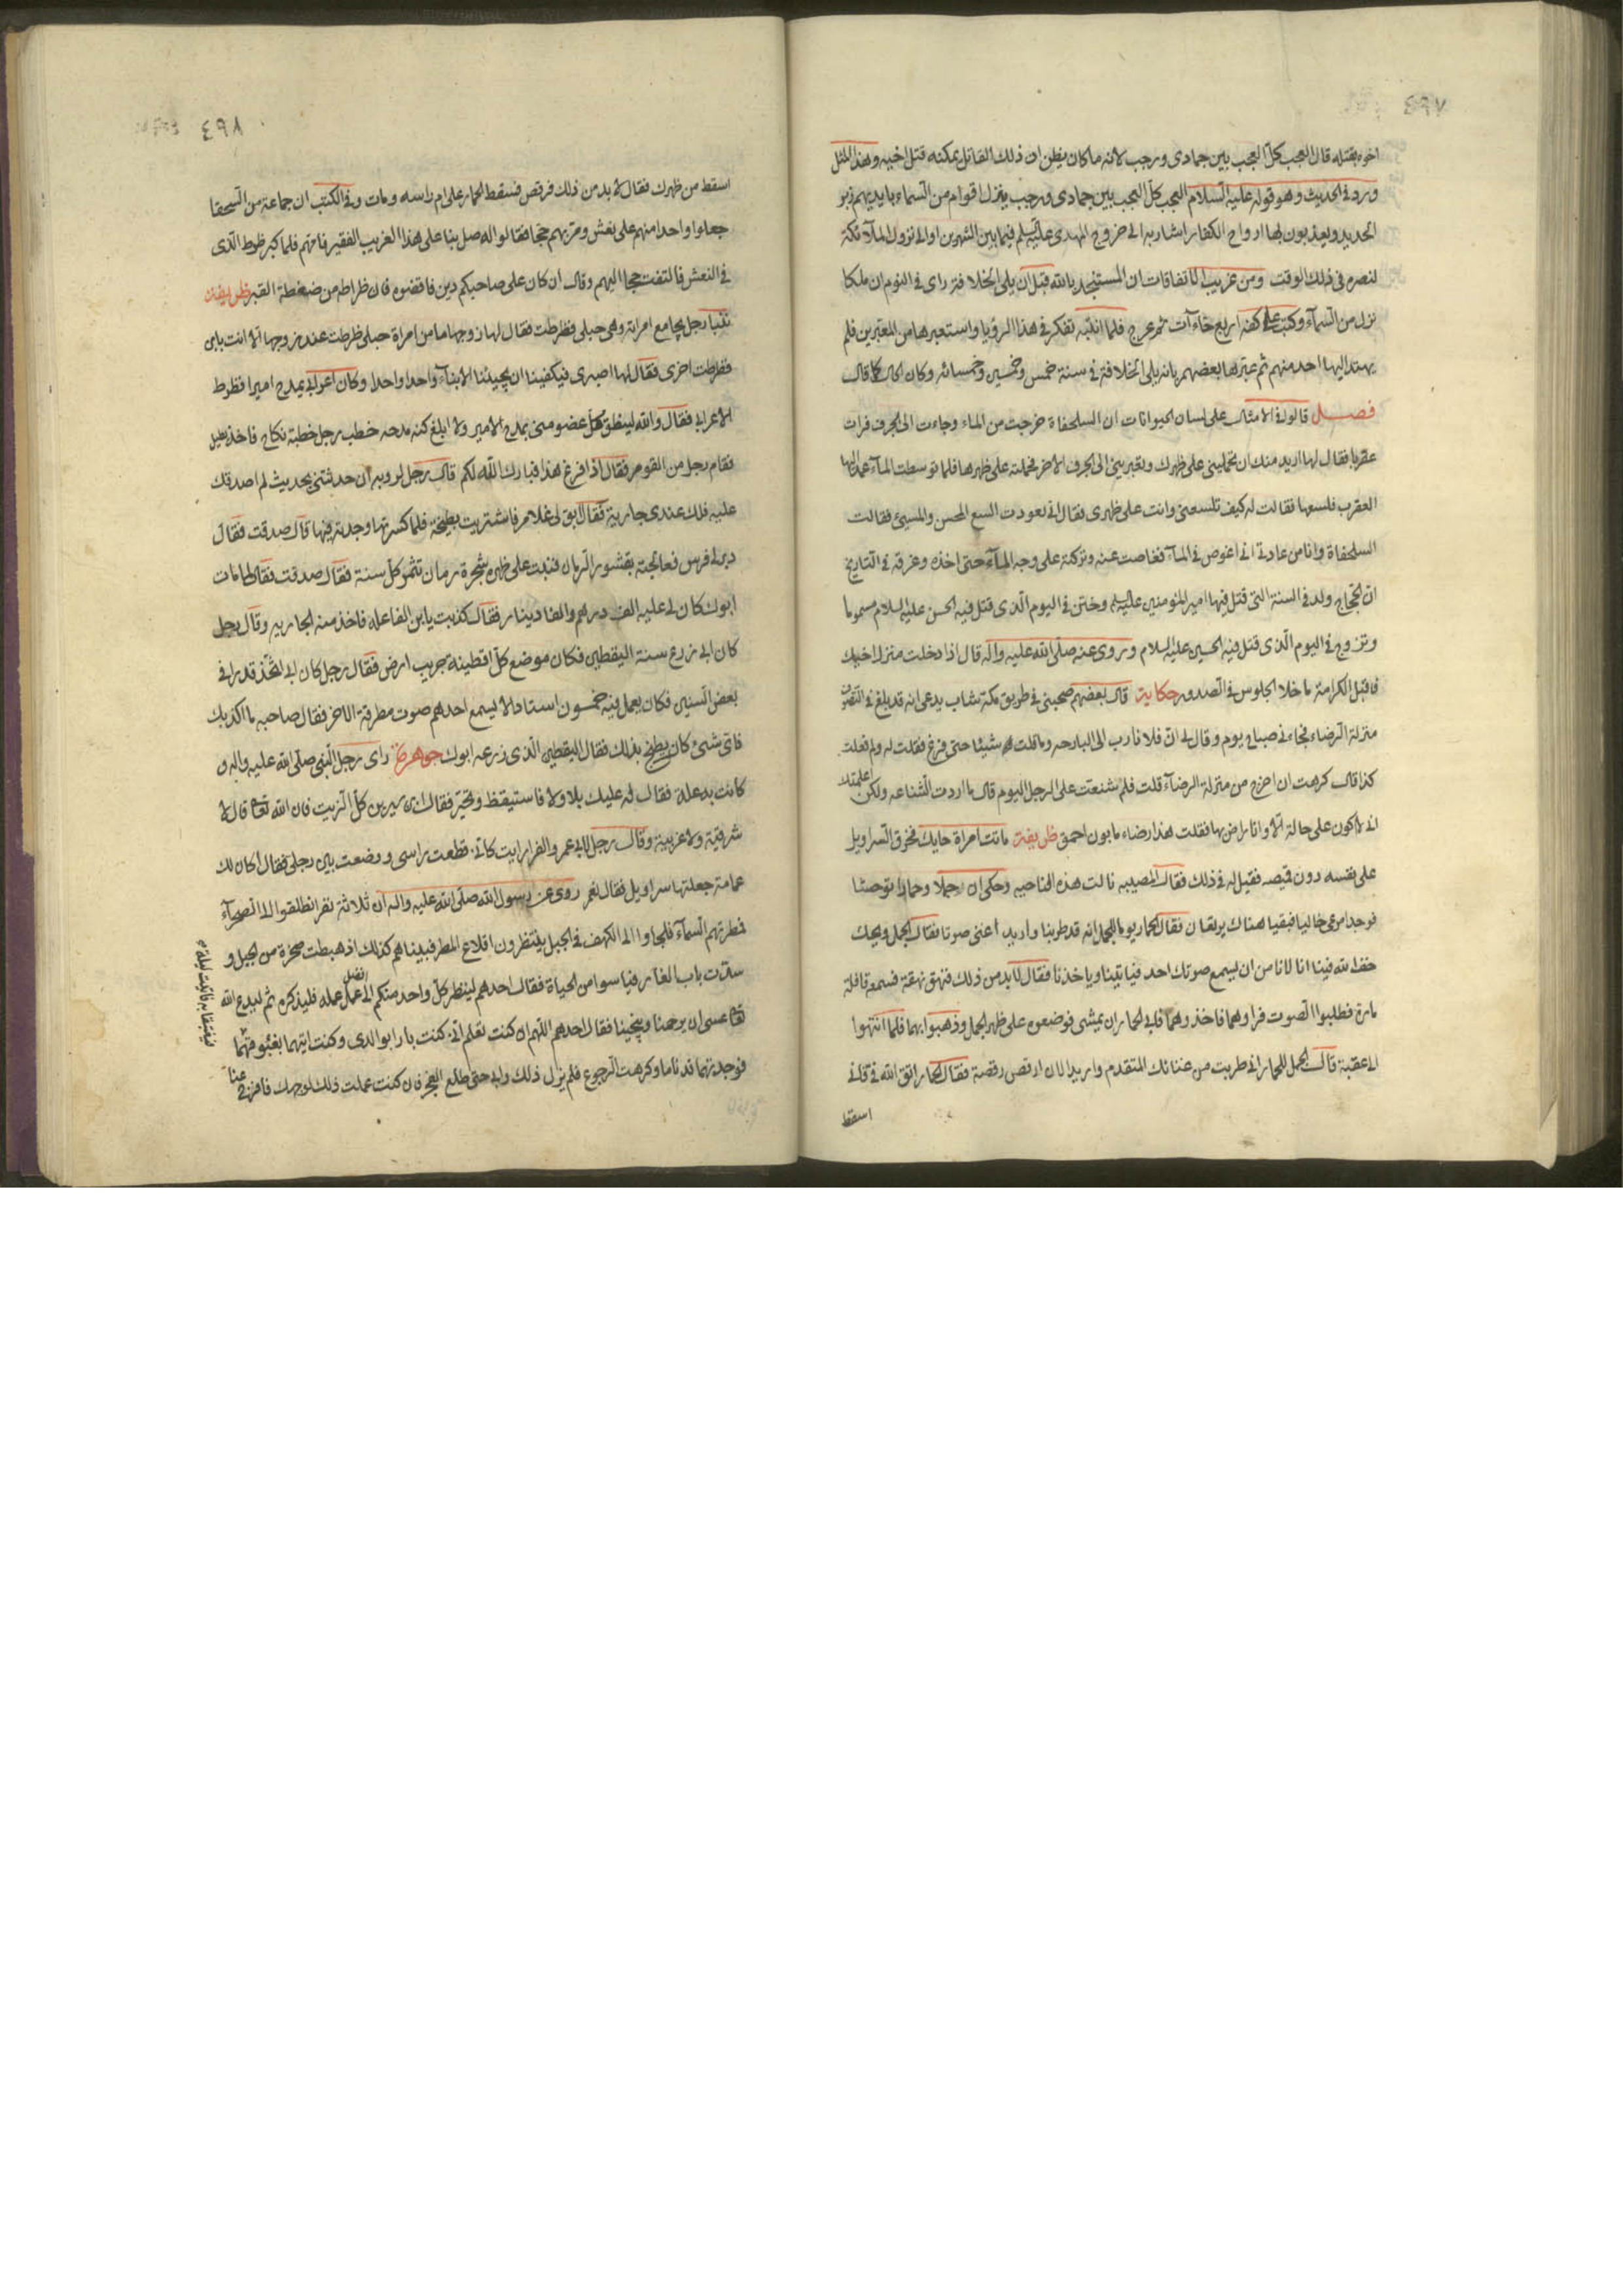 ٤٩٧
اخوه بقتله قال العجب كلّ العجب بين جمادى ورجب لانه ما كان يظن ان ذلك القاتل يمكنه قتل اخيه وهذا المثل
ورد فى الحديث وهو قوله عليه السلام العجب كلّ العجب بين جمادى ورجب ينزل اقوام من السماء بايديهم زبر
الحديد ويعذبون بها ارواح الكفار اشار به الى خروج المهدى عليه السلم فيما بين الشهرين او الى نزول الملآئكة
لنصره فى ذلك الوقت ومن غريب الاتفاقات ان المستنجد بالله قبل ان يلى الخلافة راى فى النوم ان ملكا
نزل من السمآء وكتب على كفه اربع خاءآت ثم عرج فلما انتبه تفكر فى هذا الرؤيا واستعبرها من المعبرين فلم
يهتد اليها احد منهم ثم عبّرها بعضهم بانه يلى الخلافة فى سنة خمس وخمسين وخمسمائه وكان الحال كما قال
فصل قالوا فى الامثال على لسان الحيوانات ان السلحفاة خرجت من الماء وجاءت الى الجرف فرات
عقربا فقال لها اريد منك ان تحمليني على ظهرك وتعبريني الى الجرف الاخر فحملته على ظهرها فلما توسطت المآء عمد اليها
العقرب فلسعها فقالت له كيف تلسعنى وانت على ظهرى فقال انى تعودت السع المحسن والمسيئ فقالت
السلحفاة وانا من عادتى انى اغوص فى المآء فغاصت عنه وتركته على وجه المآء حتى اخذه وغرقه فى التاريخ
ان الحجاج ولد فى السنة التى قتل فيها امير المؤمنين عليه السلم وختن فى اليوم الّذى قتل فيه الحسن عليه السلام مسموما
وتزوج فى اليوم الّذى قتل فيه الحسين عليه السلام وروى عنه صلّى الله عليه وآله قال اذا دخلت منزل اخيك
فاقبل الكرامة ما خلا الجلوس فى الصدور حكاية قال بعضهم صحبنى فى طريق مكة شاب يدعى انه قد بلغ فى التصوف
منزلة الرضاء فجاء فى صباح يوم وقال لى انّ فلانا رب الى البارحه وما قلت له شيئا حتى فرغ فقلت له ولم فعلت
كذا قال كرهت ان اخرج من منزلة الرضآء قلت فلم شنعت على الرجل اليوم قال ما اردت الشناعه ولكن اعلمتك
انى لا اكون على حالة الّا وانا راض بها فقلت هذا رضاء مابون احمق ظريفة ماتت امراة حايك فخرق السراويل
على نفسه دون قميصه فقيل له فى ذلك فقال المصيبه نالت هذه الناحيه وحكى ان جملا وحمارا توحشا
فوجدا مرعى خاليا فبقيا هناك يرتعان فقال الحمار يوما للجمل انه قد طربنا واريد اغنى صوتا فقال الجمل ويحك
خف الله فينا انا لا نامن ان يسمع صوتك احد فياتينا وياخذنا فقال لابد من ذلك فنهق نهقة فسمعه قافلة
مارة فطلبوا الصوت فراوهما فاخذوهما فابى الحمار ان يمشى فوضعوه على ظهر الجمل وذهبوا بهما فلما انتهوا
الى عقبة قال الجمل للحمار انى طربت من غنائك المتقدم واريد الان ارقص رقصة فقال الحمار اتق الله فى فانى
اسقط
٤٩٨
اسقط من ظهرك فقال لا بد من ذلك فرقص فسقط الحمار على ام راسه ومات وفى الكتب ان جماعة من السحقا
جعلوا واحدا منهم على نعش ومرّ بهم جحا فقالوا له صل بنا على هذا الغريب الفقير فامّهم فلما كبر ظرط الّذى
فى النعش فالتفت جحا اليهم وقال ان كان على صاحبكم دين فاقضوه فان ظراطه من ضغطة القبر ظريفة
رجل يجامع امراته وهى حبلى فظرطت فقال لها زوجها ما من امراة حبلى ظرطت عند زوجها الا انت بابن
فظرطت اخرى فقال لها اصبرى فيكفينا ان يجيئنا الابنآء واحدا واحدا وكان اعرابى يمدح اميرا فظرط
الاعرابى فقال والله لينطق كلّ عضو منى بمدح الامير ولا ابلغ كنه مدحه خطب رجل خطبة نكاح فاخذ يطيل
فقام رجل من القوم فقال اذا فرغ هذا فبارك الله لكم قال رجل لرويبه ان حدثتنى بحديث لم اصدقك
عليه فلك عندى جارية فقال ابق لى غلام فاشتريت بطيخة فلما كسرتها وجدته فيها قال صدقت فقال
دبر لى فرس فعالجته بقشور الرمان فنبت على ظهره شجرة رمان تثمر كلّ سنة فقال صدقت فقال لما مات
ابوك كان لى عليه الف درهم والفا دينار فقال كذبت يا بن الفاعله فاخذ منه الجاريه وقال رجل
كان ابى زرع سنة اليقطين فكان موضع كلّ اقطينه جريب ارض فقال رجل كان ابى اتخذ قدرا فى
بعض السنين فكان يعمل فيه خمسون استادا لا يسمع احدهم صوت مطرقة الاخر فقال صاحبه ما اكذبك
فاى شئ كان يطبخ بذلك فقال اليقطين الّذى زرعه ابوك جوهرة راى رجل النبى صلّى الله عليه وآله و
كانت به علة فقال له عليك بلا ولا فاستيقظ وتحيّر فقال ابن سيرين كل الزيت فان الله تعالى قال لا
شرقية ولا غربية وقال رجل لابى عمر والفرا رايت كانّى قطعت راسى ووضعت بين رجلى فقال كان لك
عمامة جعلتها سراويل فقال نعم روى عن رسول الله صلّى الله عليه وآله ان ثلاثة نفر انطلقوا الى الصحرآء
فمطرتهم السمآء فلجاوا الى الكهف فى الجبل ينتظرون اقلاع المطر فبيناهم كذلك اذ هبطت صخرة من الجبل و
سدّت باب الغار فيأسوا من الحياة فقال احدهم لينظر كلّ واحد منكم الى افضل عمل عمله فليذكره ثم ليدع الله
تعالى عسى ان يرحمنا وينجينا فقال احدهم اللهم ان كنت تعلم انّى كنت بارا بوالدى وكنت اتيهما بغبوقهما
فيغتبقا به فاتيت ليلة
فوجدتهما قد ناما وكرهت الرجوع فلم يزل ذلك دابى حتى طلع الفجر فان كنت عملت ذلك لوجهك فافرج عنا